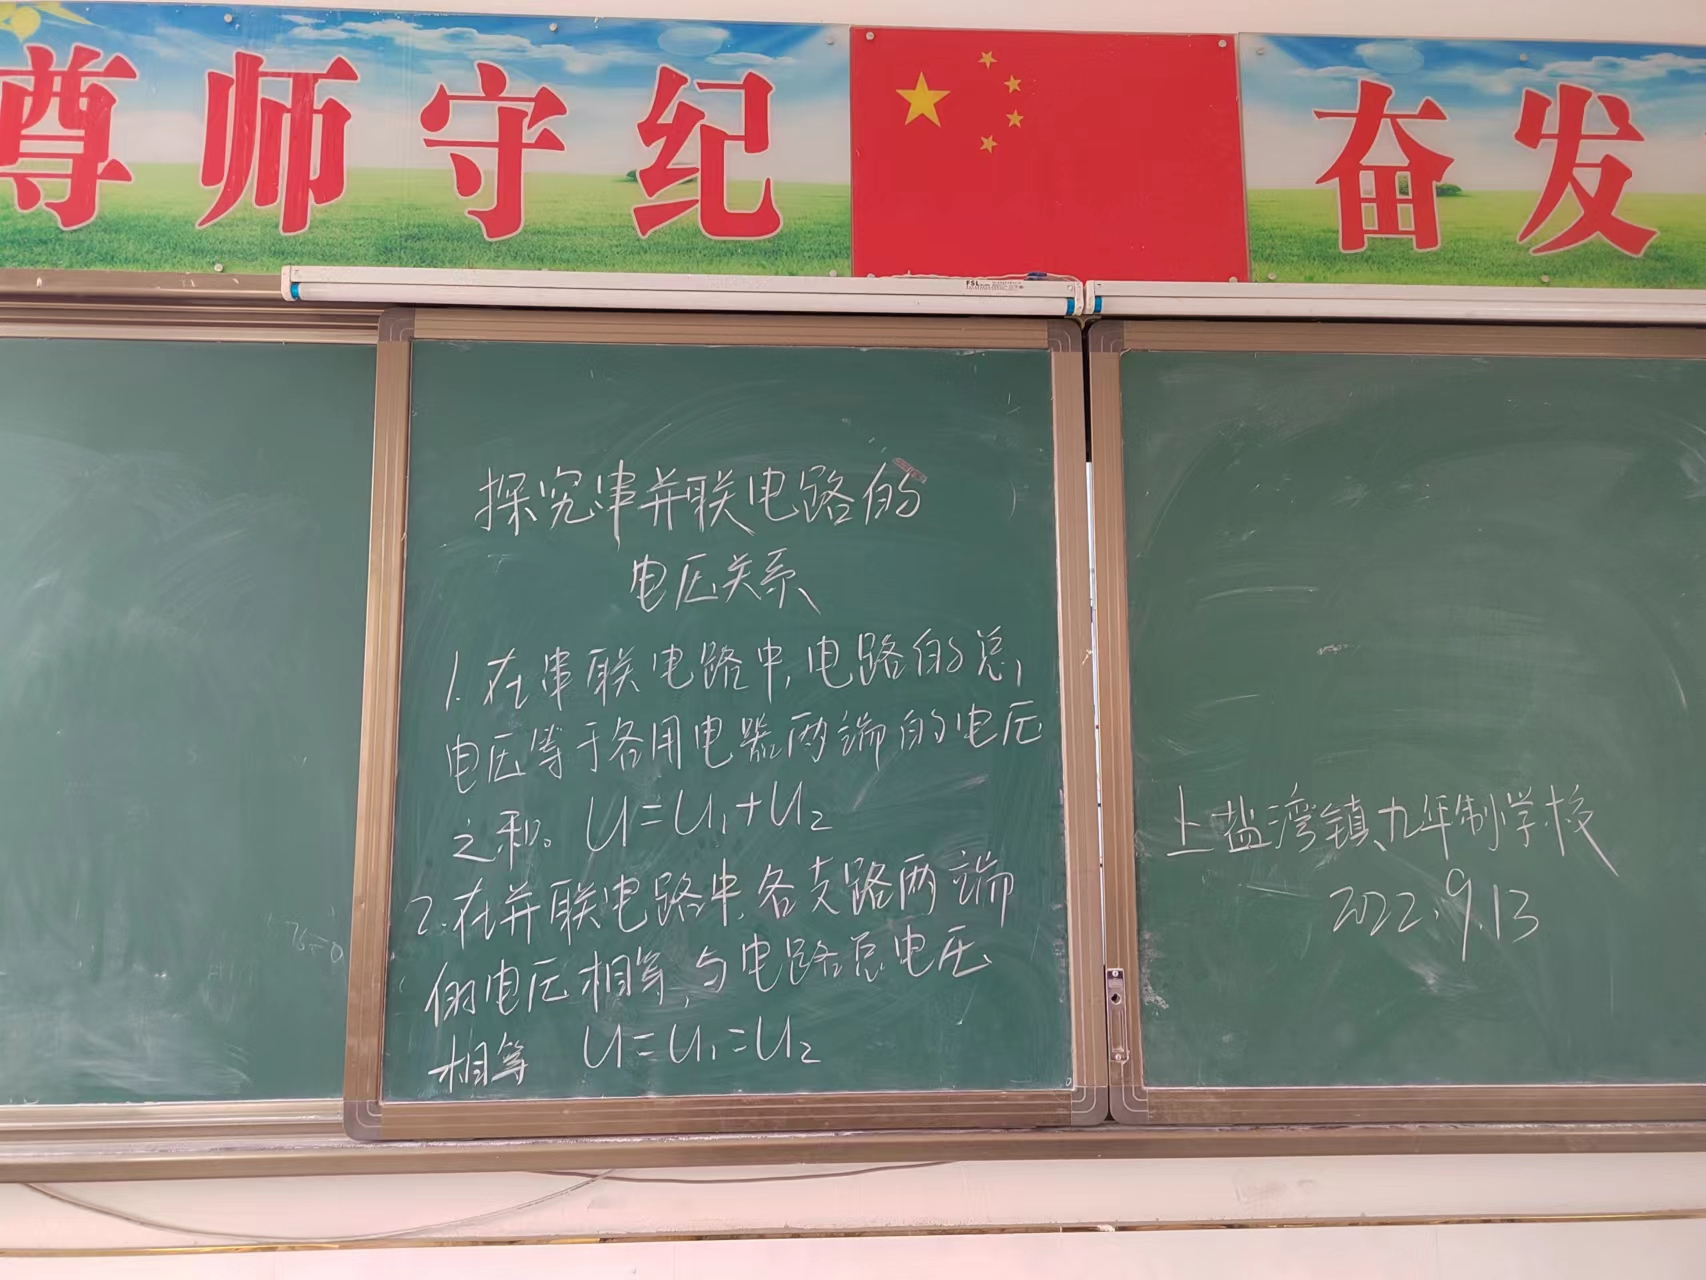 尊师守纪
奋发
探究串并联电路的
电压关系
1.在串联电路中,电路的总
电压等于各用电器两端的电压
之和。U=U₁+U₂
2.在并联电路中,各支路两端
的电压相等,与电路总电压
相等 U=U₁=U₂
上盐湾镇九年制学校
2022.9.13